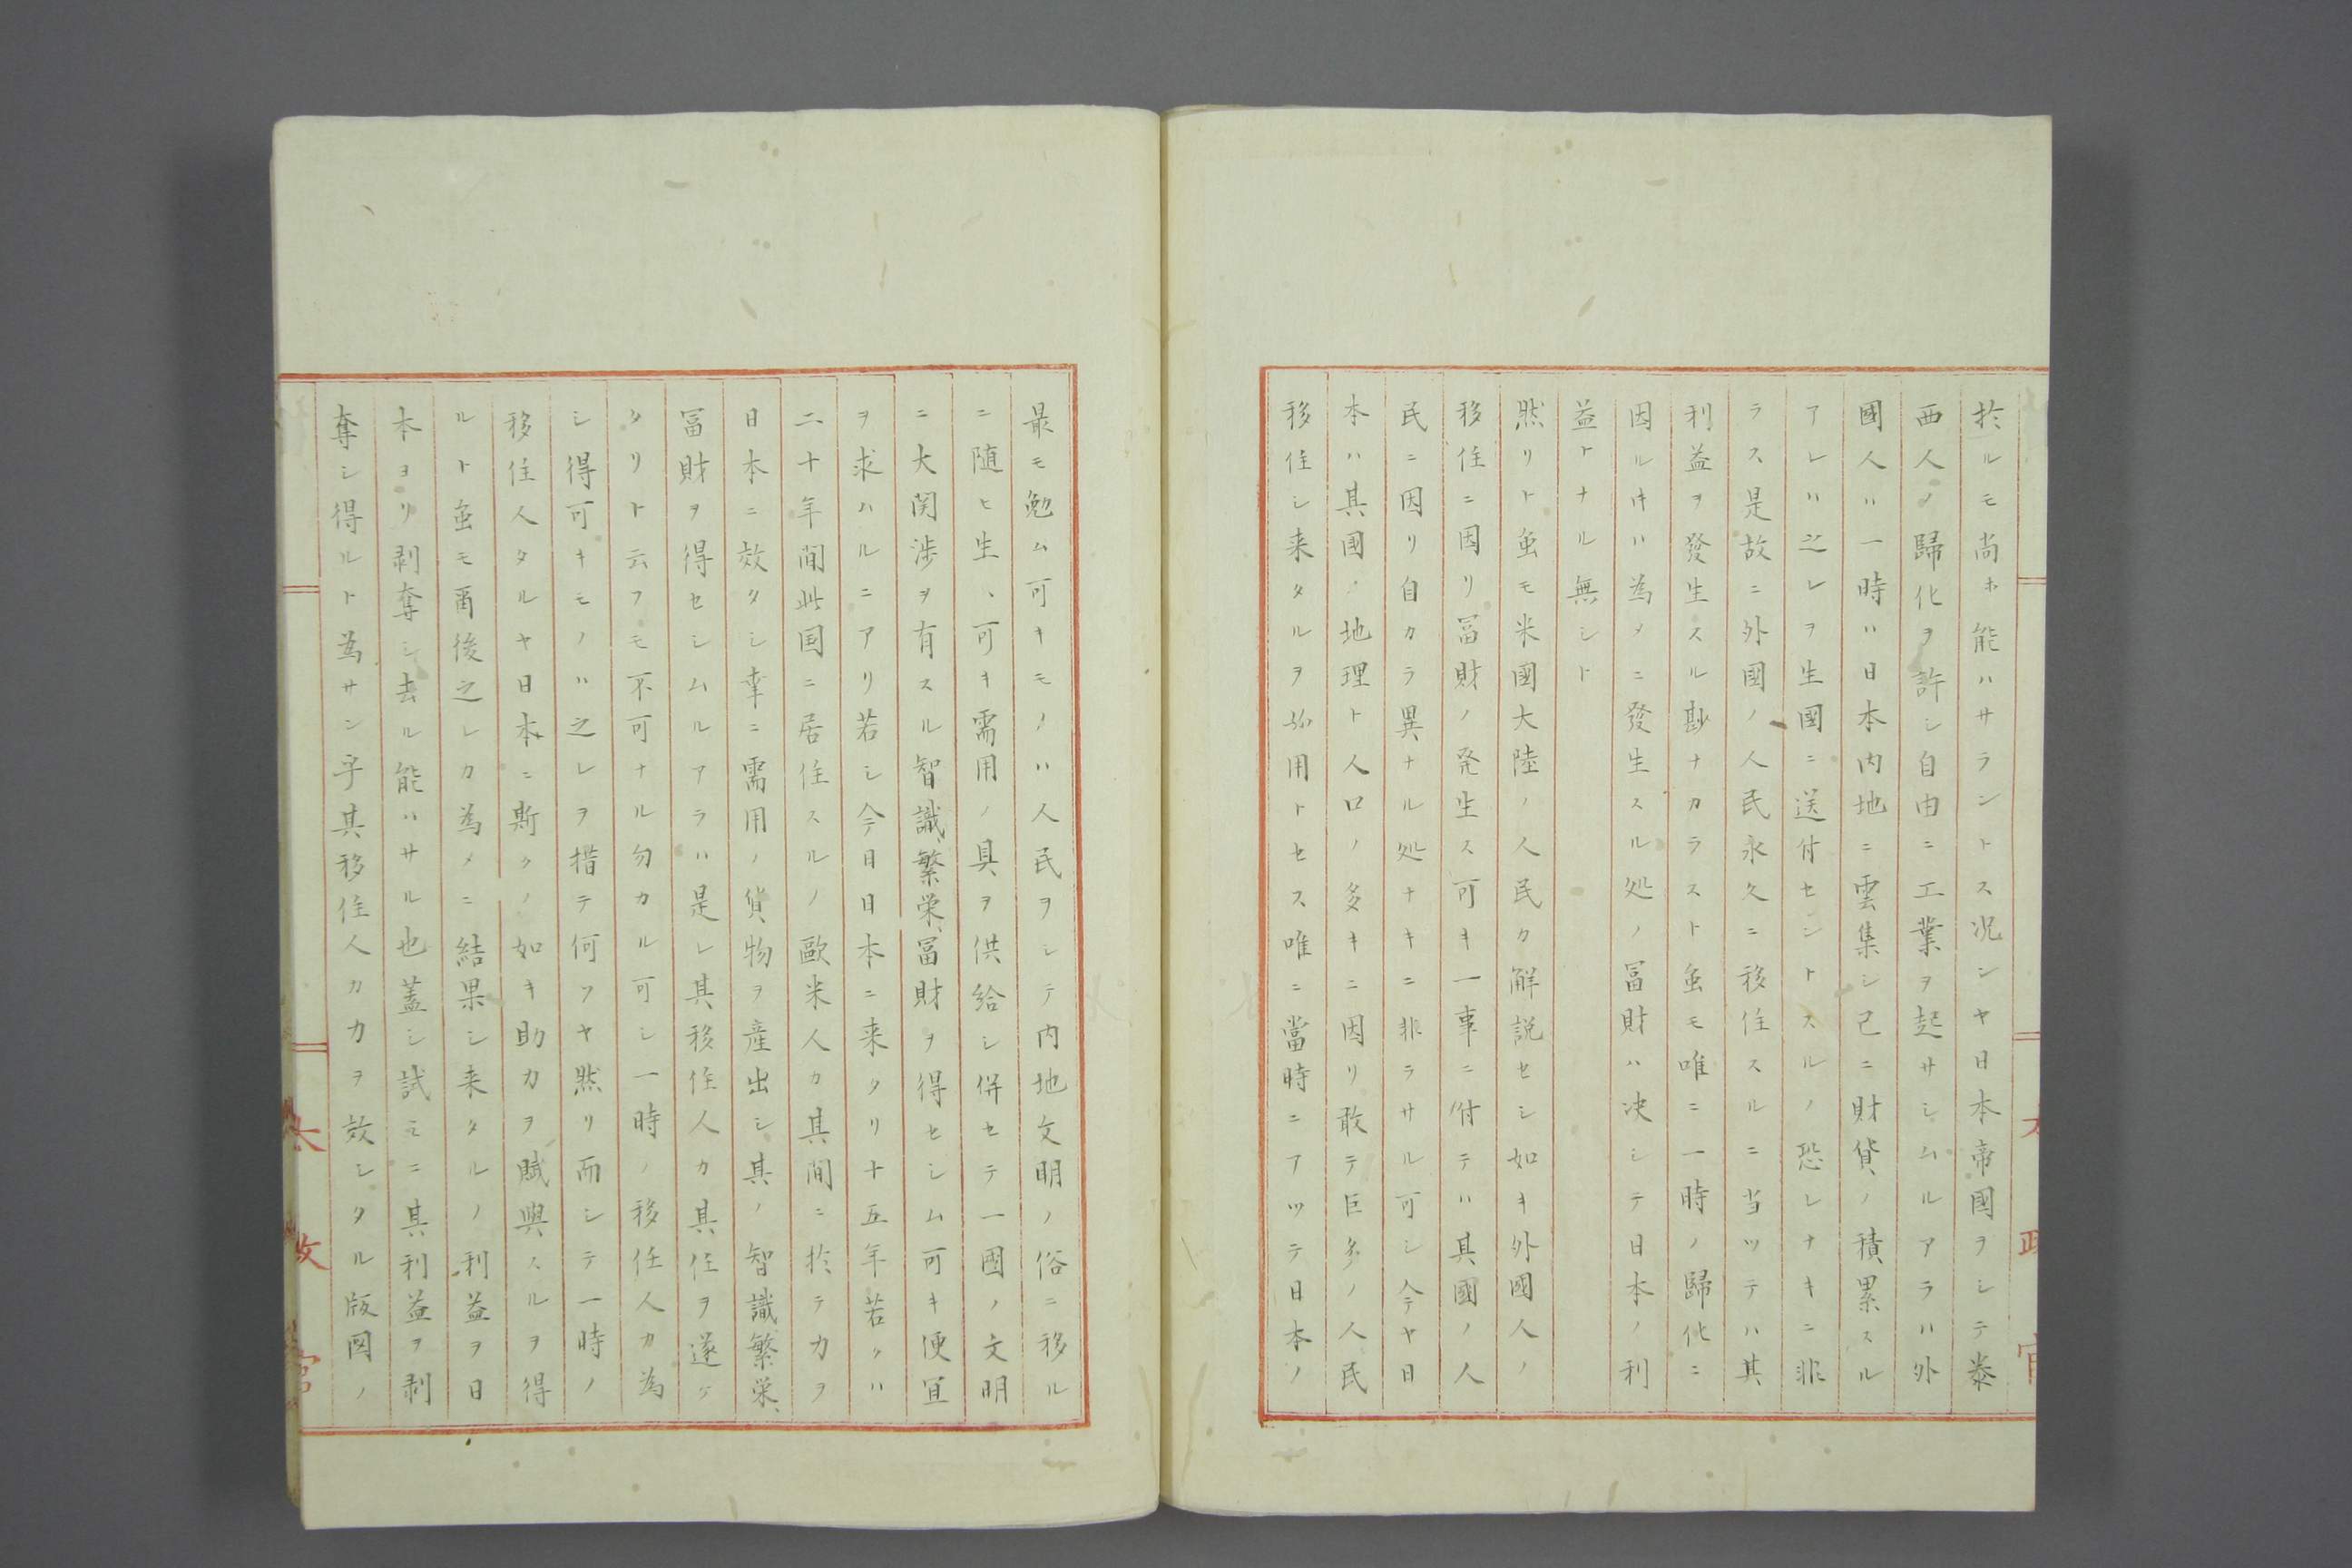 於ルモ尚ホ能ハサラントス况ンヤ日本帝國ヲシテ泰
西人ノ歸化ヲ許シ自由ニ工業ヲ起サシムルアラハ外
國人ハ一時ハ日本内地ニ雲集シ已ニ財貨ノ積累スル
アレハ之レヲ生國ニ送付セントスルノ恐レナキニ非
ラス是故ニ外國ノ人民永久ニ移住スルニ当ツテハ其
利益ヲ發生スル尠ナカラスト虽モ唯ニ一時ノ歸化ニ
因ル片ハ為メニ發生スル処ノ冨財ハ决シテ日本ノ利
益トナル無シト
然リト虽モ米國大陸ノ人民カ解説セシ如キ外國人ノ
移住ニ因リ冨財ノ発生ス可キ一事ニ付テハ其國ノ人
民ニ因リ自カラ異ナル処ナキニ非ラサル可シ今ヤ日
本ハ其國ノ地理ト人口ノ多キニ因リ敢テ巨多ノ人民
移住シ来タルヲ必用トセス唯ニ當時ニアツテ日本ノ
最モ勉ム可キモノハ人民ヲシテ内地文明ノ俗ニ移ル
ニ随ヒ生ヽ可キ需用ノ具ヲ供給シ併セテ一國ノ文明
ニ大関渉ヲ有スル智識、繁栄、冨財ヲ得セシム可キ便宜
ヲ求ハルニアリ若シ今日日本ニ来タリ十五年若クハ
二十年間此国ニ居住スルノ歐米人カ其間ニ於テカヲ
日本ニ效タシ幸ニ需用ノ貨物ヲ産出シ其ノ智識繁栄、
冨財ヲ得セシムルアラハ是レ其移住人カ其住ヲ遂ケ
タリト云フモ不可ナル勿カル可シ一時ノ移住人カ為
シ得可キモノハ之レヲ措テ何ソヤ然リ而シテ一時ノ
移住人タルヤ日本ニ斯クノ如キ助力ヲ賦與スルヲ得
ルト虽モ爾後之レカ為メニ結果シ来タルノ利益ヲ日
本ヨリ剥奪シ去ル能ハサル也蓋シ試ミニ其利益ヲ剥
奪シ得ルト為サン乎其移住人カカヲ效シタル版図ノ
太政官